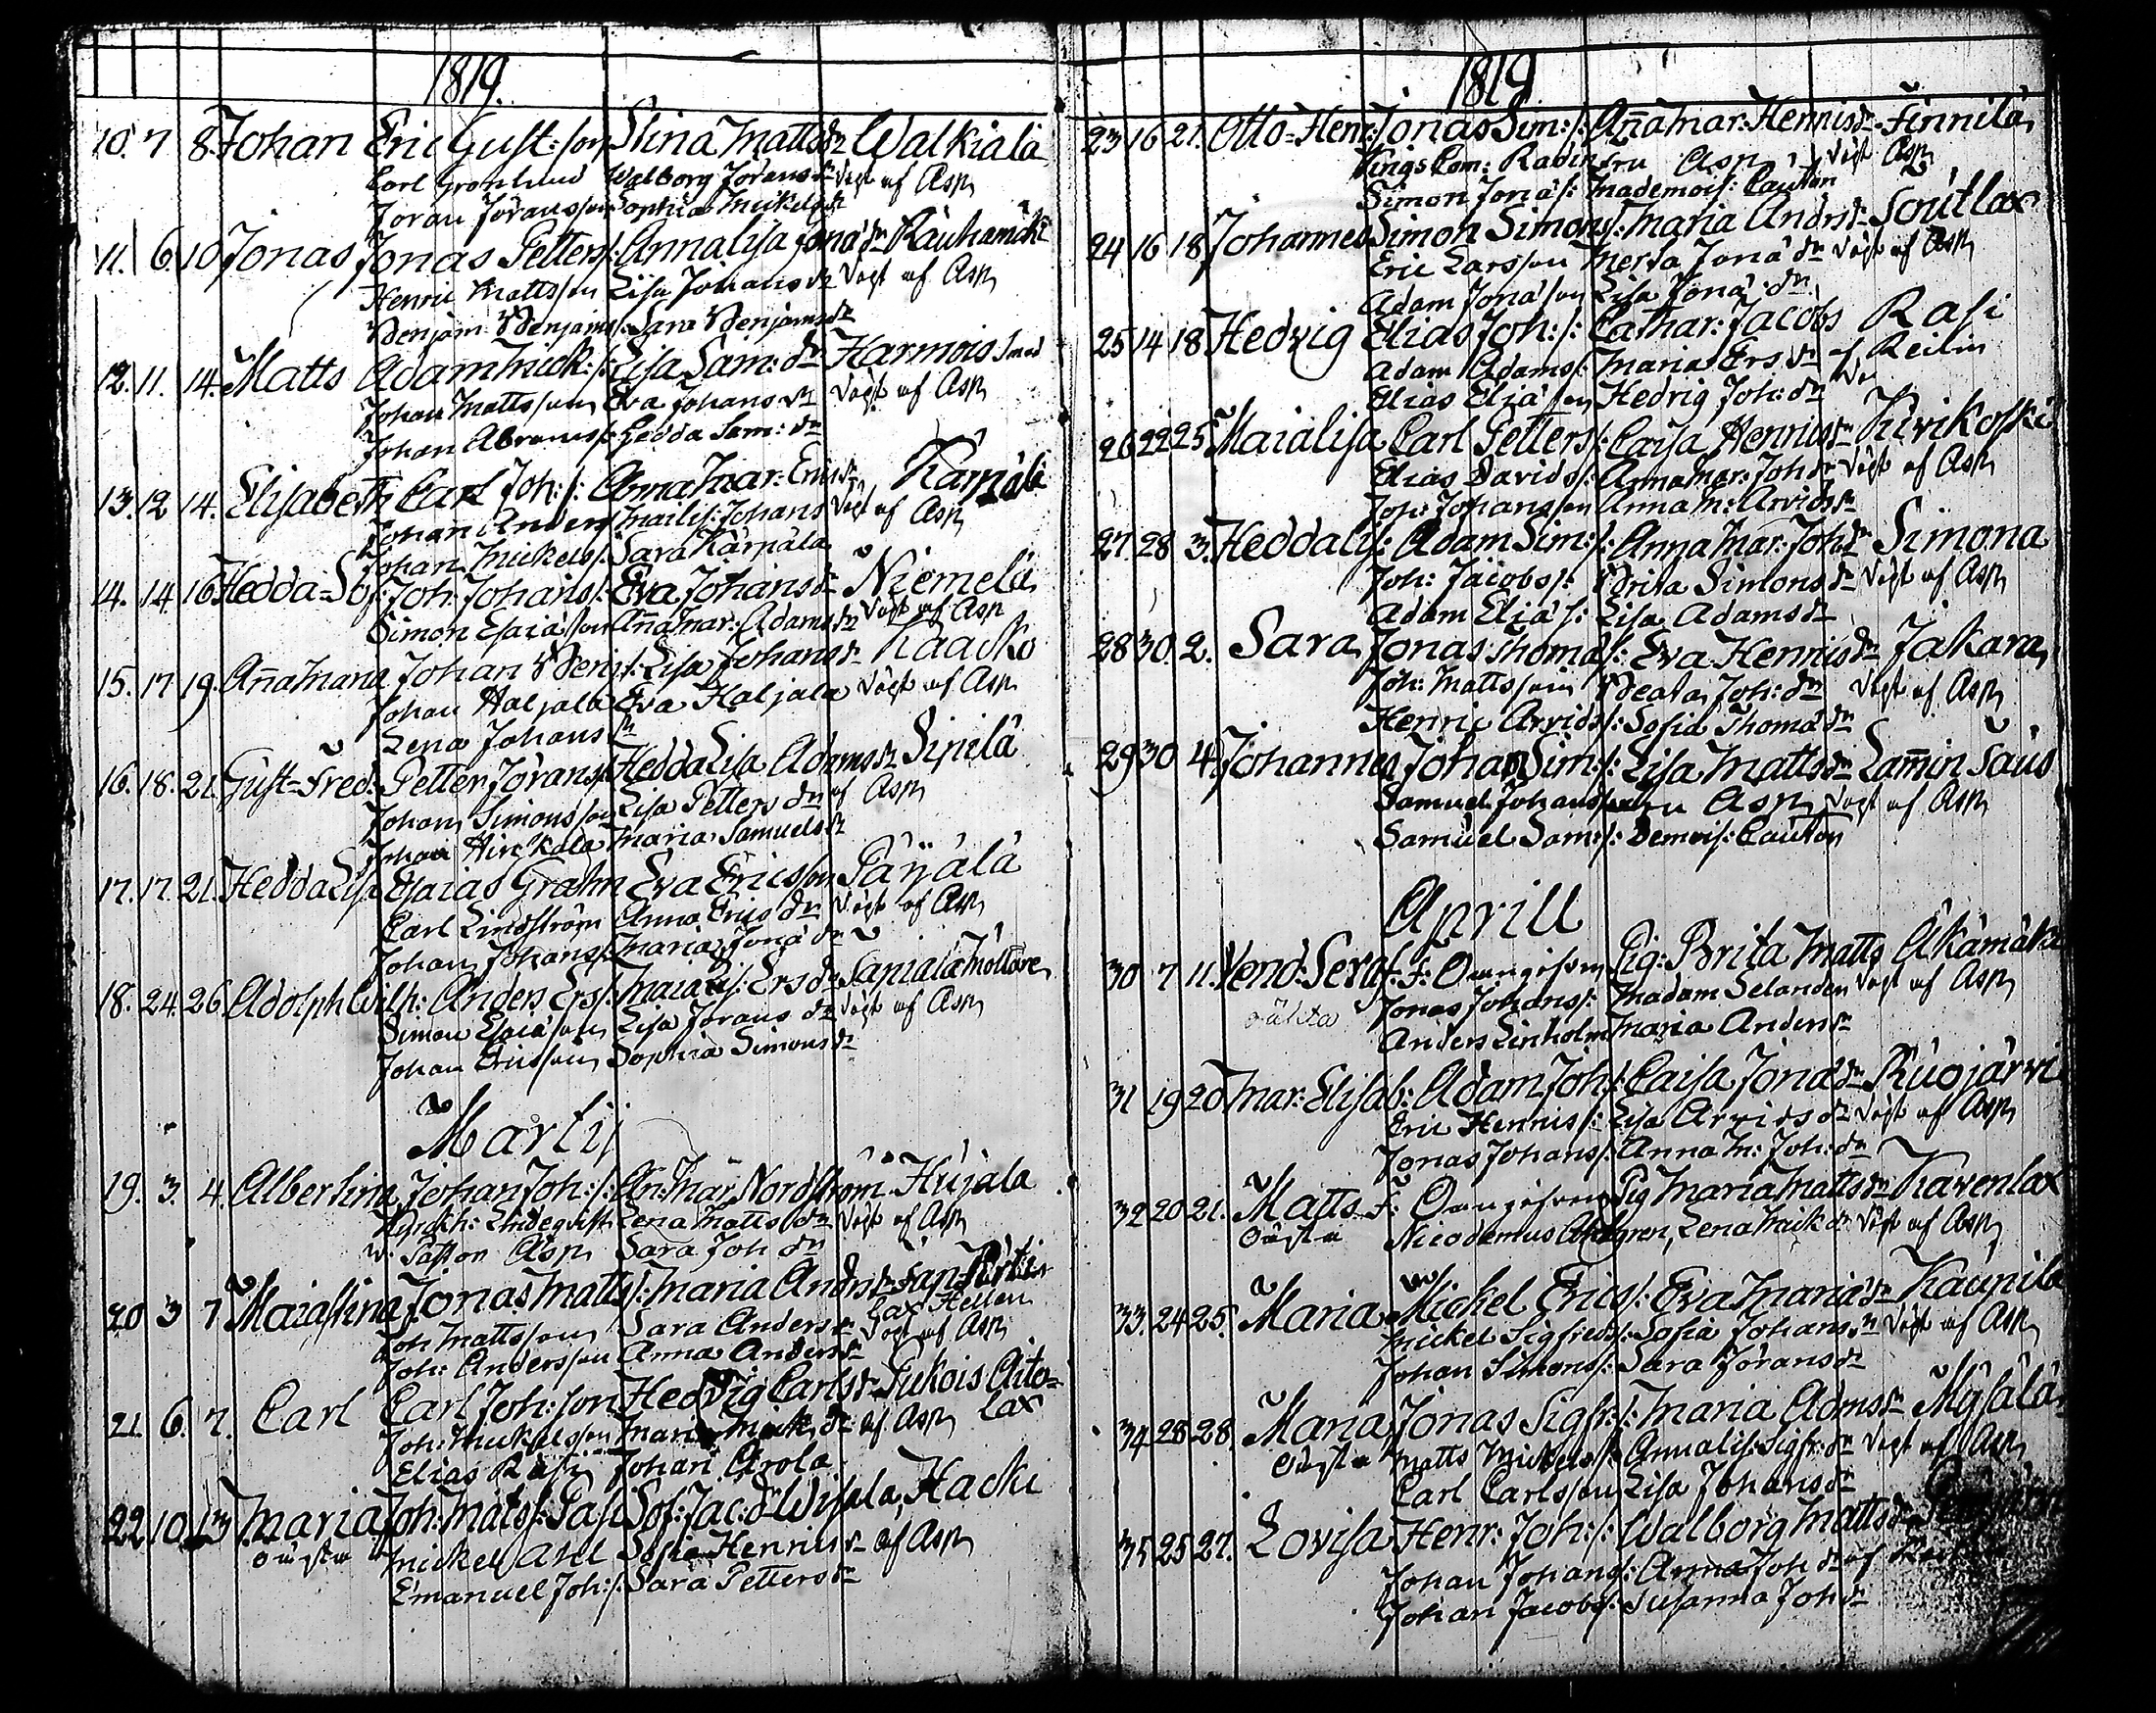 1819.
10. 7 8. Johan Eric Gust:son Stina Mattsdr Walkiala
Carl Grönlund Walborg Joransdr Döpt af Asp
Joran Joransson Sophia Mickelsdr
11. 6. 10 Jonas Jonas Petters/: Annalisa Jonadr Rauhamäki
Henric Mattsson Lisa Johansdr Döpt af Asp
Benjam: Benjams/: Sara Benjamsdr
12. 11. 14. Matts Adam Mick:/: Lisa Sam:dr Harmois
Johan Mattsson Eva Johansdr Döpt af Asp
Johan Abrams/: Hedda Sam:dr
13. 12 14. Elisabeth Carl Joh:/: Anna Mar: Ericsdr Kamala
Johan Anders Mailis: Johans Döpt af Asp
Johan Mickels/: Sara Kamala
14. 14 16 Hedda-Sof: Joh: Johans/: Eva Johansdr Niemelä
Simon Esaiasson Anna Mar: Adamsdr Döpt af Asp
15. 17 19. Anna Maria Johan Benj:/: Lisa Johansdr Kaacko
Johan Haljala Eva Haljala Döpt af Asp
Lena Johansdr
16. 18. 21. Gust-Fred: Petter Jorans/: Hedda Lisa Adamsdr Sipilä
Johan Simonsson Lisa Pettersdr af Asp
Johan Hirckala Maria Samuelsdr
17. 17. 21. Hedda Lisa Esaias Grahn Eva Ericsson Päijälä
Carl Lindström Anna Ericsdr Döpt af Asp
Johan Johans/: Maria Jonadr
18. 24. 26. Adolph Wilh: Anders Ers/: Maialis: Ersdr Sapiala
Simon Esaiason Lisa Joransdr Döpt af Asp
Johan Ericsson Sophia Simonsdr
Martij
19. 3. 4. Albertina Johan Joh:/: An: Mar: Nordström Hujala
Lindeqvist Lena Mattsdr Döpt af Asp
Asp Sara Johdr
20 3 7 Maiastina Jonas Matts/: Maria Andrsdr
Joh Mattsson Sara Andersdr
Joh: Andersson Anna Andersdr Döpt af Asp
21. 6. 7. Carl Carl Joh:son Hedvig Carlsdr Pukois Aito=
Joh: Mickelsson Maria af Asp lax
Elias Rasi Johan Arola
22 10. 13 Maria Joh: Mats/: Sof: Jac:dr Wisala Hacki
Mickel Ahl Sofia Henricsdr af Asp
Emanuel Joh:/: Sara Pettersdr
1819
23 16 21. Otto-Henr: Jonas Sim:/: Anna Mar: Henricsdr Finnilä
Fru Asp Döpt Asp
Simon Jona/: Mademois/: Cauton
24 16 18 Johannes Simon Simons/: Maria Andrsdr Soutlax
Eric Larsson Merta Jonadr Döpt af Asp
Adam Jonason Lisa Jonadr
25 14 18 Hedvig Elias Joh:/: Cathar: Jacobs Rasi
Adam Adams/: Maria Ersdr af Reilin
Elias Eliason Hedvig Joh:dr
26 22 25. Maialisa Carl Petters/: Caisa Henricsdr Kivikoski
Elias Davids/: Anna Mar: Johdr Döpt af Asp
Joh: Johansson Anna M: Arvidsdr
27. 28 3. Heddalis: Adam Sim:/: Anna Mar: Johdr Simona
Joh: Jacobs/: Brita Simonsdr Döpt af Asp
Adam Elia/: Lisa Adamsdr
28 30. 2. Sara Jonas Thoma/: Eva Henricsdr Jakara
Joh: Mattsson Beata Joh:dr Döpt af Asp
Henric Arvids/: Sofia Thomadr
29 30 4. Johannes Johan Sim:/: Lisa Mattsdr
Samuel Johansson Fru Asp Döpt af Asp
Samuel Sam:/: Demois/: Cauton
Aprill
30 7 11. Vend: Seraf: F: Oangifven Pig: Brita Matts Äkämäki
oäkta Jonas Johans/: Madam Selander Döpt af Asp
Anders Linholm Maria Andersdr
31 19 20 Mar: Elisab: Adam Joh/: Caisa Jonadr Ruojärvi
Eric Henrics/: Lisa Arvidsdr Döpt af Asp
Jonas Johans/: Anna M: Joh:dr
32 20 21. Matts F: Oangifven Pig Maria Mattsdr Kavenlax
Oägta Nicodemus Lena Mickdr Döpt af Asp
33. 24 25. Maria Mickel Erics/: Eva Mariadr Kaupila
Mickel Sigfreds/: Sofia Johansdr Döpt af Asp
Johan Simons/: Sara Joransdr
34 28 28. Maria Jonas Sigfr:/: Maria Admsdr Mysälä
Oägta Matts Mickels/: Annalis: Sigfr:dr Döpt af Asp
Carl Carlsson Lisa Johansdr
35 25 27. Lovisa Henr: Joh:/: Walborg Mattsdr
Johan Johans/: Anna Johdr af
Johan Jacobs/: Susanna Johdr